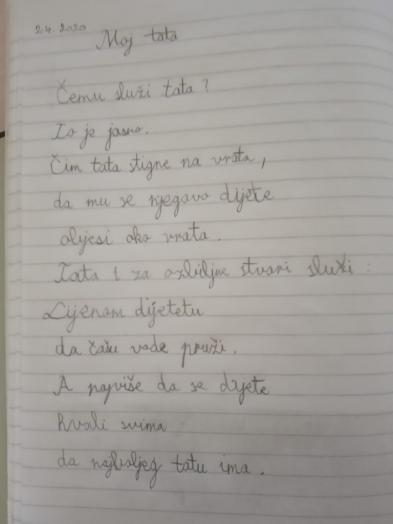 2.4. 2020
Moj tata
Čemu služi tata?
To je jasno.
Čim tata stigne na vrata,
da mu se njegovo dijete
objesi oko vrata.
Tata i za ozbiljne stvari služi:
Lijenom djetetu
da čašu vode pruži.
A najviše da se dijete
hvali svima
da najboljeg tatu ima.